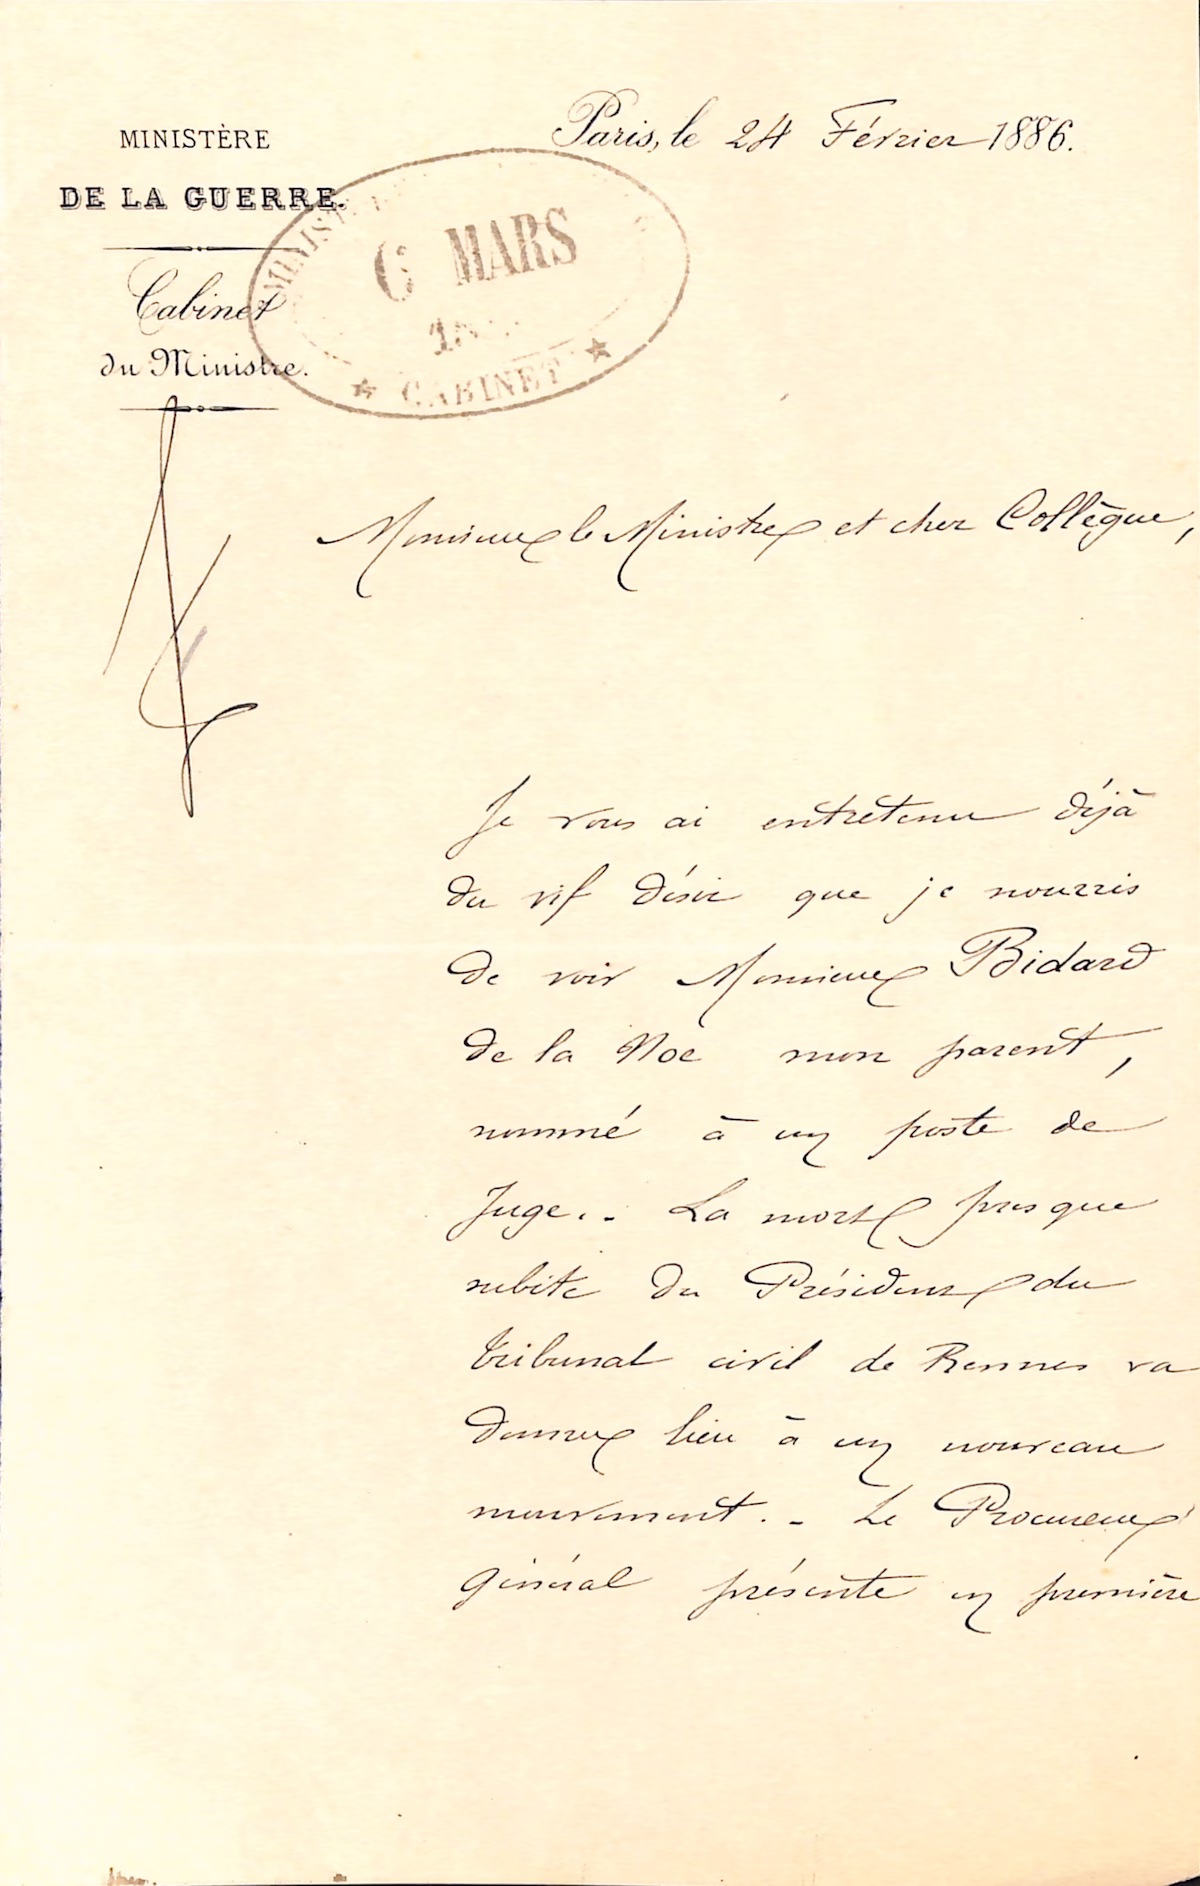 MINISTÈRE
DE LA GUERRE.
Cabinet
du Ministre.
Paris, le 24 Février 1886.
MINIST
6 MARS
CABINET
Monsieur le Ministre et cher Collègue,
Je vous ai entretenu déjà
du vif désir que je nourris
de voir Monsieur Bidard
de la Noe mon parent,
nommé à un poste de
Juge. - La mort presque
subite du Président du
tribunal civil de Rennes va
donner lieu à un nouveau
mouvement. - Le Procureur
Général présente en première